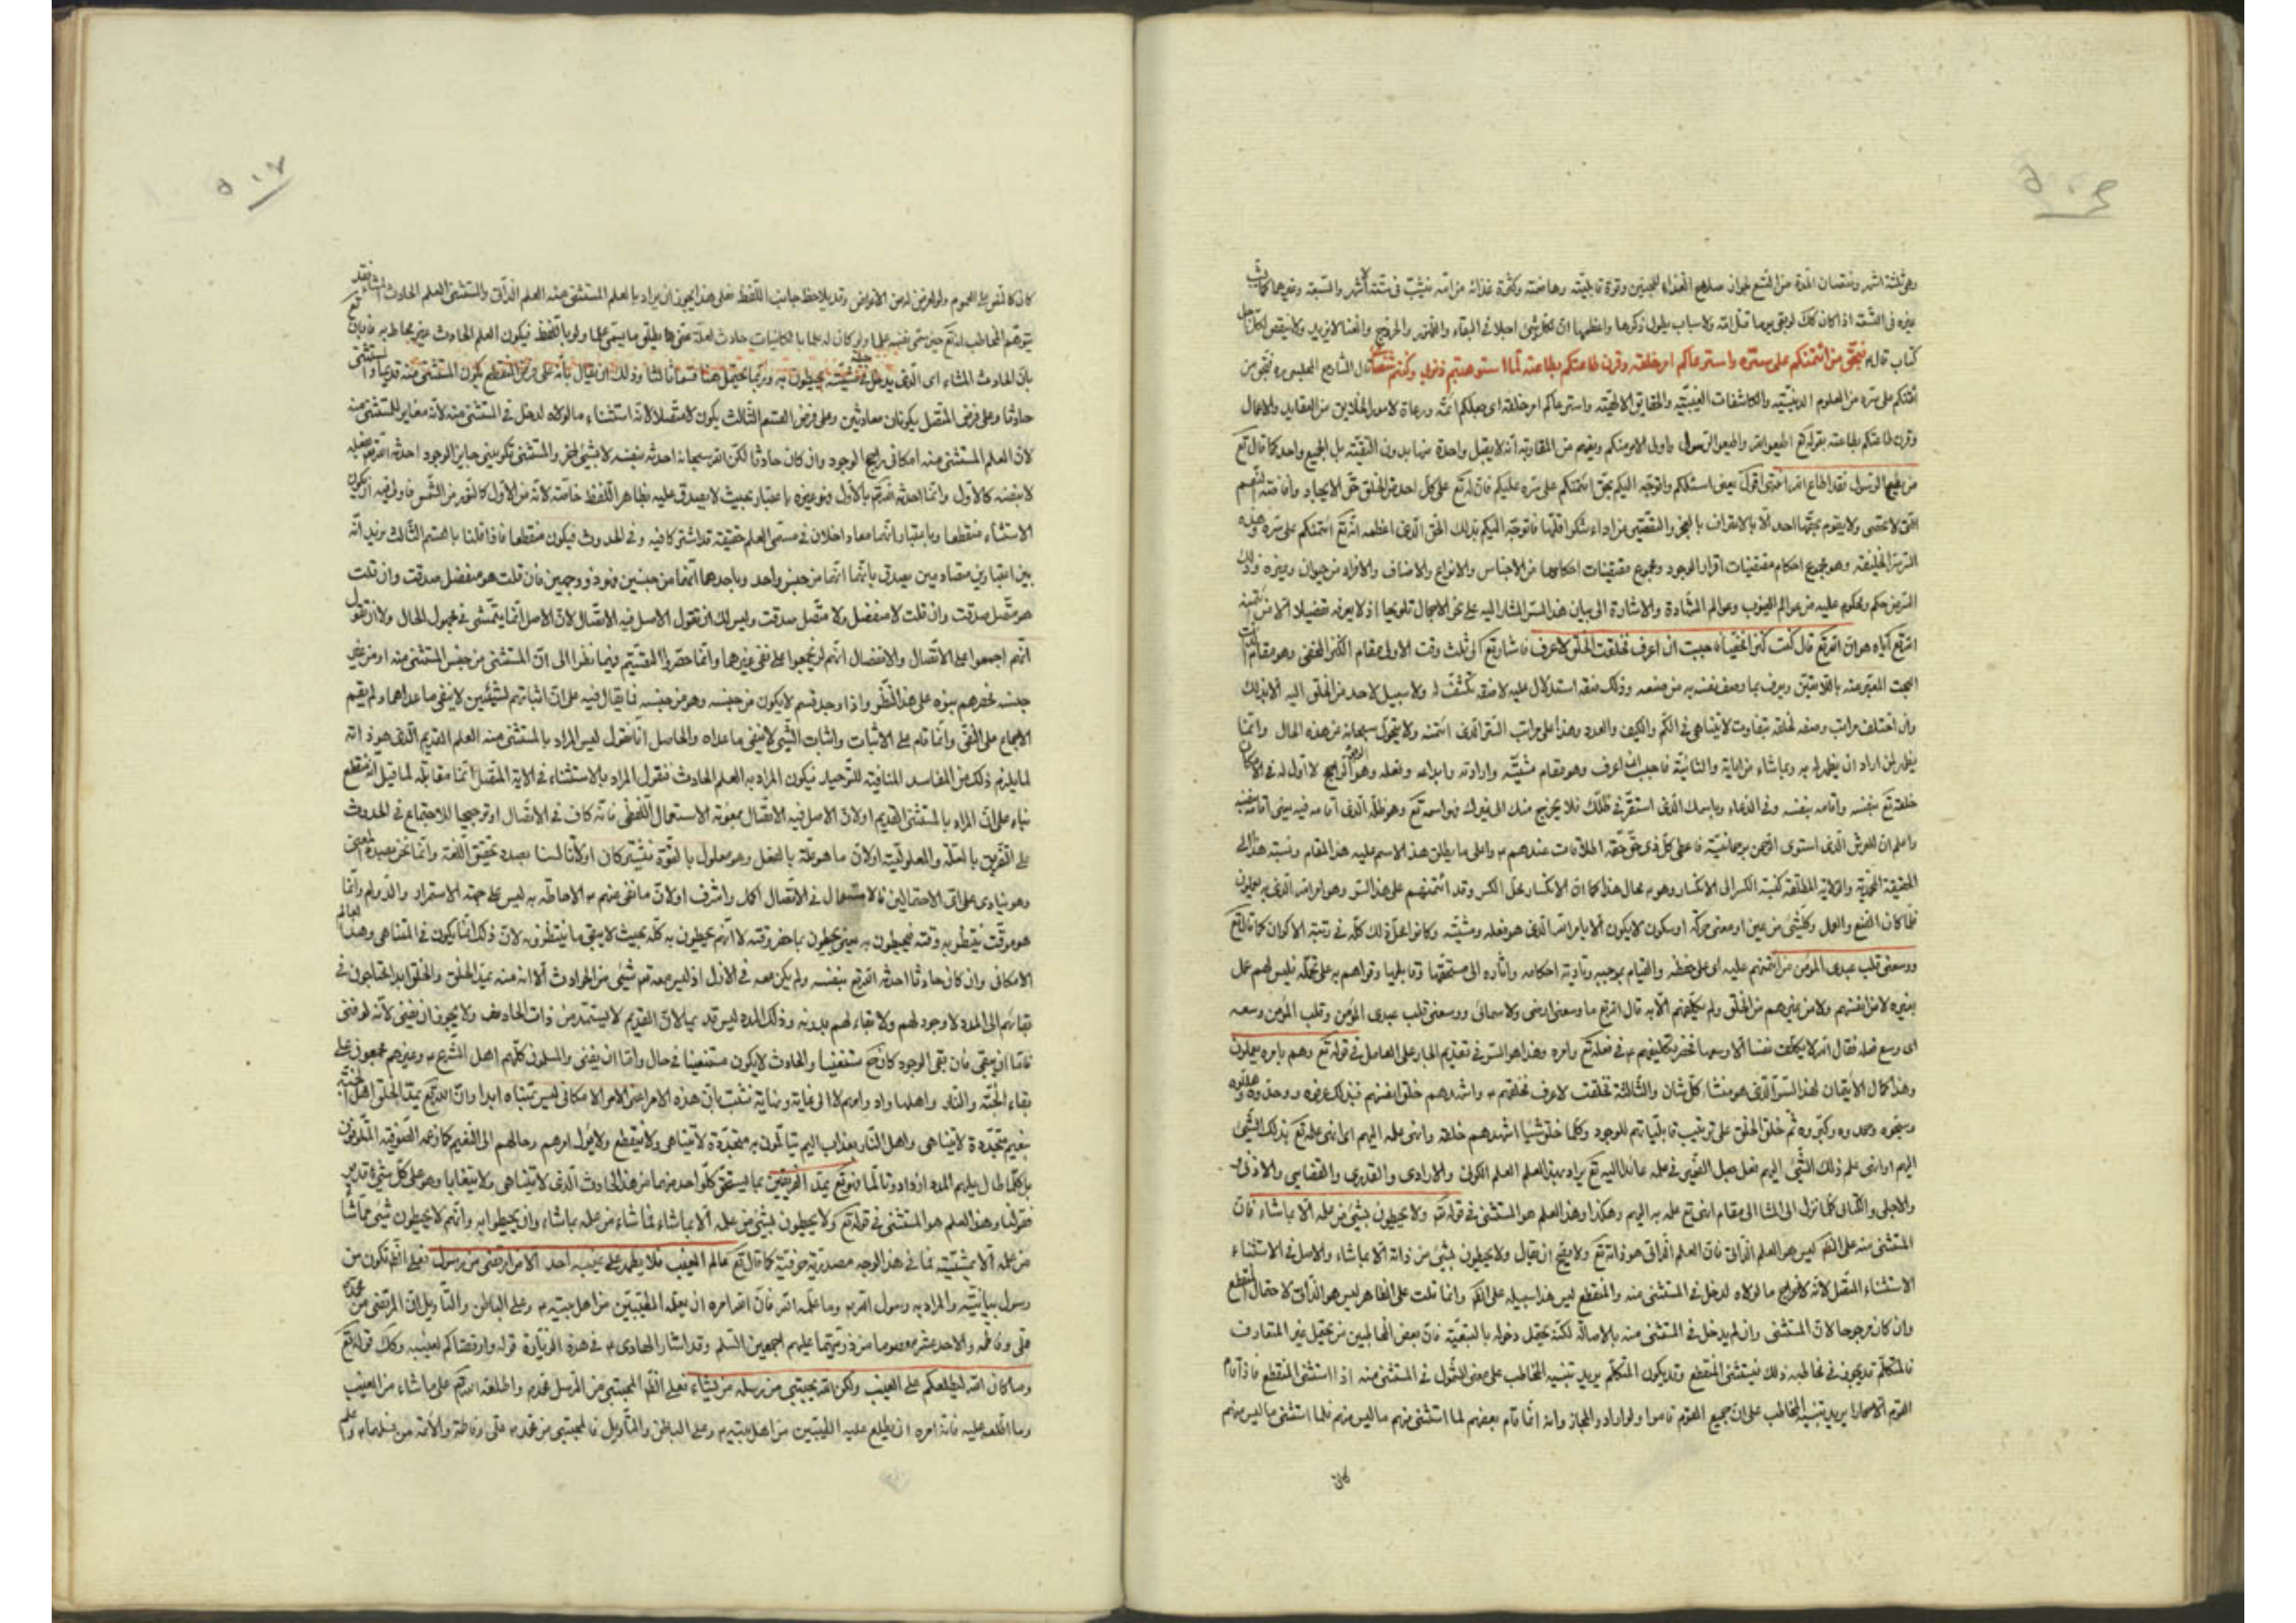 ٥٠٦
وهي ثلثة اشهر ونقصان المدة من التسع لجواز صلاح الغذاء للجنين وقوة قابليته وهاضمته وكثرة غذائه من امه فيثبت في ستة اشهر والسبعة وغيرها كما يثبت
غيره في التسعة اذا كان كك لم يبق يوما قبل امه ولاسباب يطول ذكرها واعظمها ان لكل شئ اجلا في البقاء والظهور والخروج والفناء لا يزيد ولا ينقص لكل اجل
كتاب قال ع فبحق من ائتمنكم على سره واسترعاكم امر خلقه وقرن طاعتكم بطاعته لما استوهبتم ذنوبي وكنتم شفعائي قال الشارح المجلسي ره فبحق من
ائتمنكم على سره من العلوم اللدنية والمكاشفات الغيبية والحقايق الالهية واسترعاكم امر خلقه اي جعلكم ائمة ورعاة لامور الخلايق من العقايد والاعمال
وقرن طاعتكم بطاعته بقوله تع اطيعوا الله واطيعوا الرسول واولي الامر منكم ويفهم من المقارنة انه لا يقبل واحدة منها بدون البقية بل الجميع واحد كما قال تع
من يطع الرسول فقد اطاع الله انتهى اقول يعني اسئلكم واتوجه اليكم بحق ائتمنكم على سره عليكم فان له تع على كل احد من الخلق حق الايجاد وافاضته النعم
التي لا تحصى ولا يقوم بحقها احد الا بالاعتراف بالعجز والتقصير من اداء شكر اقلها فاتوجه اليكم بذلك الحق الذي اعظمه انه تع ائتمنكم على سره وهذه
السر الخليقة وهو مجموع احكام مقتضيات اقرار الوجود ومجموع مقتضيات احكامها من الاجناس والانواع والاصناف والافراد من حيوان وغيره وذلك
السر من حكم ومحكوم عليه من عوالم الغيوب وعوالم الشهادة والاشارة الى بيان هذا السر المشار اليه على نحو الاجمال تلويحا اذ لا يعرفه تفصيلا الا من ائتمنه
الله تع اياه هو ان الله تع قال كنت كنزا مخفيا فاحببت ان اعرف فخلقت الخلق لاعرف فاشار تع الى ثلث وقت الاولى مقام الكنز المخفي وهو مقام الذات
البحت المعبر عنه باللاتعين ويعرف بما وصف نفسه به من صنعه وذلك معرفة استدلال عليه لا معرفة تكشف له ولا سبيل لاحد من الخلق اليه الا بذلك
وان اختلف مراتب وصفه لخلقه بتفاوت لا يتناهى في الكم والكيف والعدد وهذا على مراتب السر الذي ائتمنه ولا يتحول سبحانه عن هذه الحال وانما
يظهر لمن اراد ان يظهر له به وبما شاء من اياته والثانية فاحببت ان اعرف وهو مقام مشيته وارادته وابداعه وفعله وهو الوجود الراجح لا اول له في الامكان
خلقه تع بنفسه واقامه بنفسه وفي الدعاء وباسمك الذي استقر في ظلك فلا يخرج منك الى غيرك فهو اسمه تع وهو ظله الذي اقامه فيه يعني اقامه بنفسه
واعلم ان للعرش الذي استوى الرحمن برحمانيته فاعطى كل ذي حق حقه اطلاقات عندهم ع واعلى ما يطلق هذا الاسم عليه هذا المقام ونسبة هذا الى
الحقيقة المحمدية والولاية المطلقة كنسبة الكسر الى الانكسار وهو به محال هذا كما ان الانكسار محل الكسر وقد ائتمنهم على هذا السر وهو امر الله الذي به يعملون
فلما كان الصنع والعمل وكل شئ من عين او معنى حركة او سكون لا يكون الا بامر الله الذي هو فعله ومشيته وكانوا علة ذلك كله في رتبة الاكوان كما قال تع
ووسعني قلب عبدي المؤمن من ائتمنهم عليه اي على حفظه والقيام بموجبه وتأدية احكامه واثاره الى مستحقها وقابليها وقواهم به على تحمله فليس لهم عمل
بغيره لا من انفسهم ولا من غيرهم من الخلق ولم يكلفهم الا به قال الله تع ما وسعني ارضي ولا سمائي ووسعني قلب عبدي المؤمن وقلب المؤمن وسعه
اي وسع فعله فقال الله لا يكلف نفسا الا وسعها فحصر تكليفهم في فعله تع وامره وهذا هو السر في تقديم الجار على العامل في قوله تع وهم بامره يعملون
وهذا كمال الايتمان لهذا السر الذي هو منشاء كل شان والثالثة فخلقت لاعرف فخلقهم ع واشهدهم خلق انفسهم فبذلك عرفوه ووحدوه وهللوه
وسبحوه ومجدوه وكبروه ثم خلق الخلق على ترتيب قابلياتهم للوجود وكلما خلق شيئا اشهدهم خلقه وانهى علمه اليهم اي انهى علمه تع بذلك الشئ
اليهم او انهى علم ذلك الشئ اليهم فعلى جعل الضمير في علمه عائدا اليه تع يراد بهذا العلم العلم الكوني والارادي والقدري والقضايي والاذني
والاجلي والكتابي كلما نزل الى الشاء الى مقام انهى تع علمه به اليهم وهكذا وهذا العلم هو المستثنى في قوله تع ولا يحيطون بشئ من علمه الا بما شاء فان
المستثنى منه على الظاهر ليس هو العلم الذاتي فان العلم الذاتي هو ذاته تع ولا يصح ان يقال ولا يحيطون بشئ من ذاته الا بما شاء والاصل في الاستثناء
الاستثناء المتصل لانه لاخراج ما لولاه لدخل في المستثنى منه والمنقطع ليس هذا سبيله على الظاهر وانما قلت على الظاهر ليس هو الذاتي لاحتمال المنقطع
وان كان مرجوحا لان المستثنى وان لم يدخل في المستثنى منه بالاصالة لكنه يحتمل دخوله بالتبعية فان بعض المخاطبين من يحتمل غير المتعارف
فالمتكلم قد يجوز في مخاطبه ذلك فيستثنى المنقطع وقد يكون المتكلم يريد تنبيه المخاطب على معنى الشمول في المستثنى منه اذا استثنى المنقطع فاذا قام
القوم الا حمارا يريد تنبيه المخاطب على ان جميع القوم قاموا ولو اراد والمجاز وانه انما قام بعضهم لما استثنى منهم ما ليس منهم فلما استثنى ما ليس منهم
كان
٥٠٧
كان كالنص على العموم ولو لغرض لمن الاغراض وقد يلاحظ جانب اللفظ فعلى هذا يجوز ان يراد بالعلم المستثنى منه العلم الذاتي والمستثنى العلم الحادث المشاء فقد
يتوهم المخاطب انه تع حين سمى نفسه علما ولو كان له علما بالكائنات حادث لعلة حتى ها يطلق ما يسمى علما ولو باللفظ فيكون العلم الحادث غير محاط به فابان تع
بان الحادث المشاء اي الذي يدخل في مشيته يحيطون به وربما يحتمل هنا قسما ثالثا وذلك ان يقال بانه على فرض المنقطع يكون المستثنى منه قديما والمستثنى
حادثا وعلى فرض المتصل يكونان حادثين وعلى فرض القسم الثالث يكون لا متصلا لانه استثناء ما لولاه لدخل في المستثنى منه لانه مغاير للمستثنى منه
لان العلم المستثنى منه امكاني راجح الوجود وان كان حادثا لكن الله سبحانه احدثه بنفسه لا بشئ اخر والمستثنى تكويني جايز الوجود احدثه الله تع بفعله
لا بنفسه كالاول وانما احدثه الله تع بالاول وهو غيره باعتبار بحيث لا يصدق عليه بظاهر اللفظ خاصة لانه من الاول كالنور من الشمس فاولى فيه ان يكون
الاستثناء منقطعا وباعتبار انهما معا داخلان في مسمى العلم حقيقة قد اشتركا فيه وفي الحدوث فيكون منقطعا فاذا قلنا بالقسم الثالث نريد انه
بين اعتبارين متضادين يصدق بانهما انهما من جنس واحد وباحدهما انهما من جنسين فهو ذو وجهين فان قلت هو منفصل صدقت وان قلت
هو متصل صدقت وان قلت لا منفصل ولا متصل صدقت وليس لك ان تقول الاصل فيه الاتصال لان الاصل انما يتمشى في مجهول الحال ولا ان تقول
انهم اجمعوا على الاتصال والانفصال انهم لم يجمعوا على نفي غيرهما وانما حصروا التقسيم فيما نظرا الى ان المستثنى من جنس المستثنى منه او من غير
جنسه فحصرهم بنوه على هذا النظر واذا وجد قسم لا يكون من جنسه وهو من جنسه فما يقال فيه على ان اثباتهم لشيئين لا ينفي ما عداهما ولم يقم
الاجماع على النفي وانما قام على الاثبات واثبات الشئ لا ينفي ما عداه والحاصل انا نقول ليس المراد بالمستثنى منه العلم القديم الذي هو ذاته
لما يلزم ذلك من المفاسد المنافية للتوحيد فيكون المراد به العلم الحادث فنقول المراد بالاستثناء في الاية المتصل انما مقابلة لما قيل انه منقطع
بناء على ان المراد بالمستثنى القديم او لان الاصل فيه الاتصال بمعونة الاستعمال اللفظي فانه كاف في الاتصال او ترجيحا للاجتماع في الحدوث
على التفريق بالعلة والمعلولية او لان ما هو علة بالفعل وهو معلول بالقوة فيشتركان او لانا لسنا بصدد تحقيق اللغة وانما نحن بصدد المعنى
وهو ينادي على ان الاحتمالين فالاستعمال في الاتصال اكمل واشرف او لان ما نفى عنهم ع الاحاطة به ليس على جهة الاستمرار والدوام وانما
هو موقت ينتظر به وقته فيحيطون به يعني يحيطون بما حضر وقته لا انهم يحيطون به كله بحيث لا يبقى ما ينتظرونه لان ذلك انما يكون في المتناهي وهذا العالم
الامكاني وان كان حادثا احدثه الله تع بنفسه ولم يكن معه في الازل اذ ليس معه تع شئ من الحوادث الا انه منه يمد الخلق والخلق ابدا محتاجون في
بقائهم الى المدد لا وجود لهم ولا بقاء لهم بدونه وذلك المدد ليس قديما لان القديم لا يستمد من ذات الحادث ولا يجوز ان يفنى لانه لو فنى
فاما ان يبقى فان بقى الوجود كان ح مستغنيا والحادث لا يكون مستغنيا في حال واما ان يفنى والمسلمون كلهم اهل الشرع ع وغيرهم مجمعون على
بقاء الجنة والنار واهلهما وانه وامرهم لا الى غاية ونهاية فثبت بان هذه الامر الامكاني ليس يتناه ابدا وان الله تع يمد الخلق اهل الجنة
بنعيم متجددة لا يتناهى واهل النار بعذاب اليم يتألمون به متجددة لا يتناهى ولا ينقطع ولا يؤل امرهم وحالهم الى النعيم كما زعمه الصوفية الملعونون
بل كلما طال عليهم المدد ازدادوا تالما فهو تع يمد الفريقين بما يستحق كل واحد منهما من هذا الحادث الذي لا يتناهى ولا يتغايا وهو على كل شئ قدير
فقولنا وهذا العلم هو المستثنى في قوله تع ولا يحيطون بشئ من علمه الا بما شاء فما شاء من علمه ما شاء وان يحيطوا به وانهم لا يحيطون بشئ مما شاء
من علمه الا بمشيته فما في هذا الوجه مصدرية حرفية كما قال تع عالم الغيب فلا يظهر على غيبه احدا الا من ارتضى من رسول فعلى الظاهر تكون من
رسول بيانية والمراد به رسول الله ص وما علمه الله فان الله امره ان يعلمه الطيبين من اهل بيته ع وعلى الباطن والتاويل ان المرتضى من محمد ص
علي وفاطمة والاحد عشر معصوما من ذريتهما عليهم اجمعين السلام وقد اشار الهادي ع في هذه الزيارة قوله وارتضاكم لغيبه وكك قوله تع
وما كان الله ليطلعكم على الغيب ولكن الله يجتبي من رسله من يشاء فعلى الظاهر المجتبى من الرسل محمد ص واطلعه الله تع على ما شاء من الغيب
وما اطلعه عليه فانه امره ان يطلع عليه الطيبين من اهل بيته ع وعلى الباطن والتأويل فالمجتبى من محمد ص علي وفاطمة والائمة من نسلهما ع